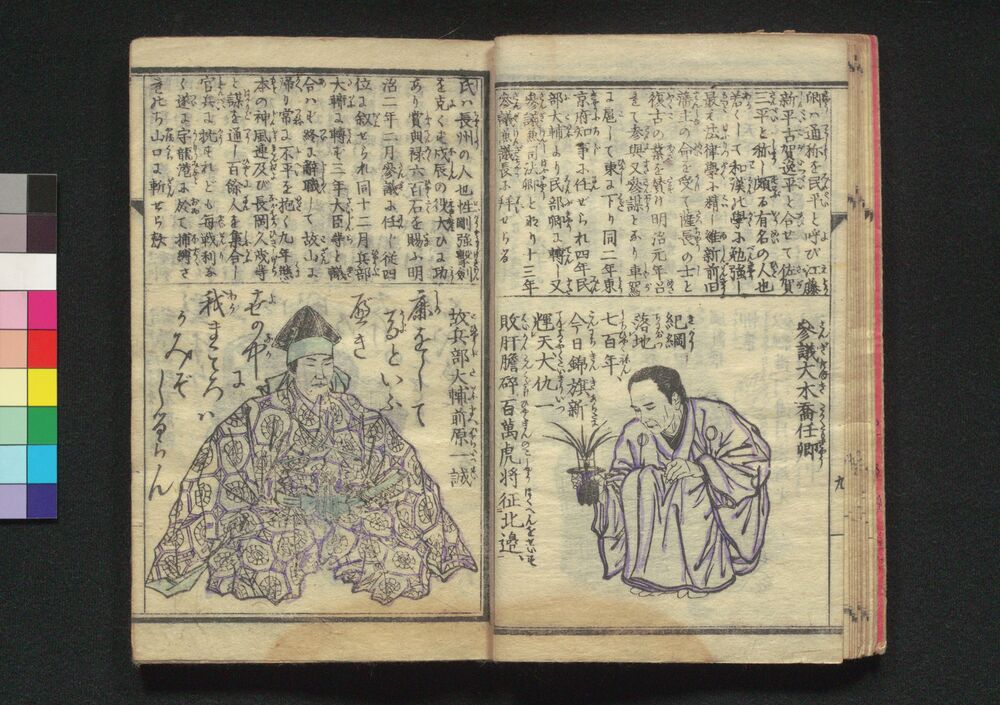 卿ハ通称を民平と呼び江藤
新平古賀逸平と合せて佐賀
三平と称し頗る有名の人也
若くして和漢の学に勉強し
最も法律学に精し維新前旧
藩主の命を受て薩長の士と
復古の業を賛け明治元年召
きて参與又参謀となり車駕
に扈して東に下り同二年東
京府知事に任せられ四年民
部大輔より民部卿に轉し又
参議兼司法卿と为り十三年
参議兼議長に拝せらる
参議大木喬任卿
紀綱
落地
七百年
今日錦旗新
輝天大仇一
敗肝膽碎
百萬虎将征北邉
九
氏ハ長州の人也性剛強撃剣
を克くも戊辰の役大ひに功
あり賞典禄六百石を賜ふ明
治二年二月参議に任じ従四
位に叙せられ同十二月兵部
大輔に轉も三年大臣等と議
合ハも終に辭職して故山に
帰り常に不平を抱く九年熊
本の神風連及び長岡久茂等
と謀を通し百餘人を集合し
官兵に抗もれども毎戦利な
く遂に宇龍港に於て捕縛さ
れたち山口に斬せらる
故兵部大輔前原一誠
世の中に
我まころハ
かみそ
しるらん